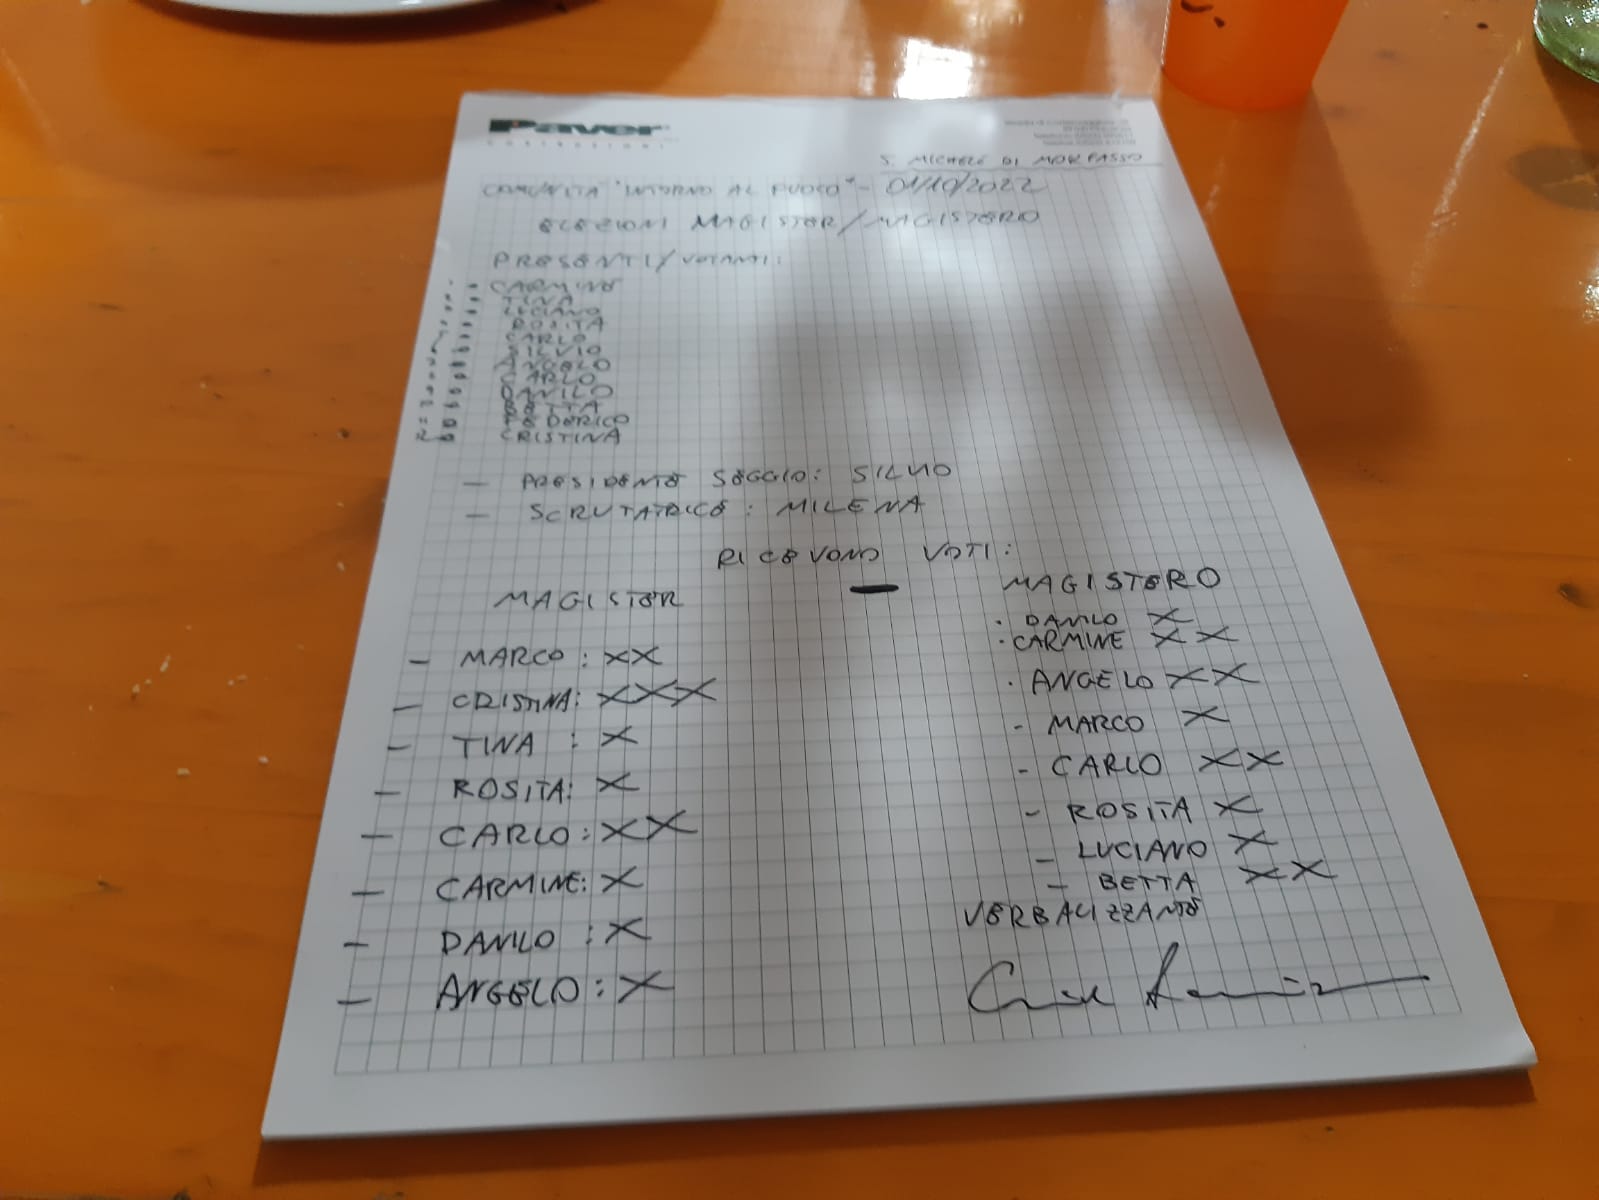 Paver
COSTRUZIONI
S. MICHELE DI MORFASSO
COMUNITA "INTORNO AL FUOCO" - 01/10/2022
ELEZIONI MAGISTER/MAGISTERO
PRESENTI/VOTANTI:
CARMINE
TINA
LUCIANO
ROSITA
CARLO
SILVIO
ANGELO
CARLO
DANILO
BETTA
FEDERICO
CRISTINA
- PRESIDENTE SEGGIO: SILVIO
- SCRUTATRICE: MILENA
RICEVONO VOTI:
MAGISTER
- MARCO: XX
- CRISTINA: XXX
- TINA : X
- ROSITA: X
- CARLO: XX
- CARMINE: X
- DANILO : X
- ANGELO: X
MAGISTERO
· DANILO X
· CARMINE X X
· ANGELO XX
- MARCO X
- CARLO XX
- ROSITA X
- LUCIANO X
- BETTA XX
VERBALIZZANTE